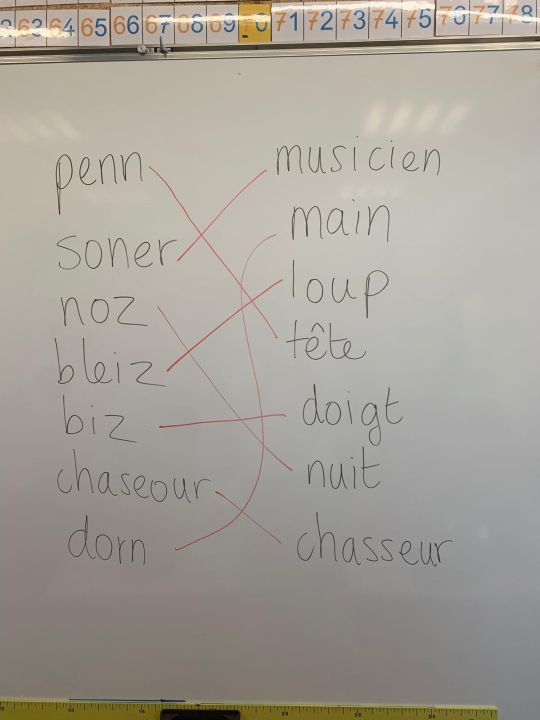 63 64 65 66 67 68 69 70 71 72 73 74 75 76 77 78
penn musicien
soner main
noz loup
bleiz tête
biz doigt
chaseour nuit
dorn chasseur